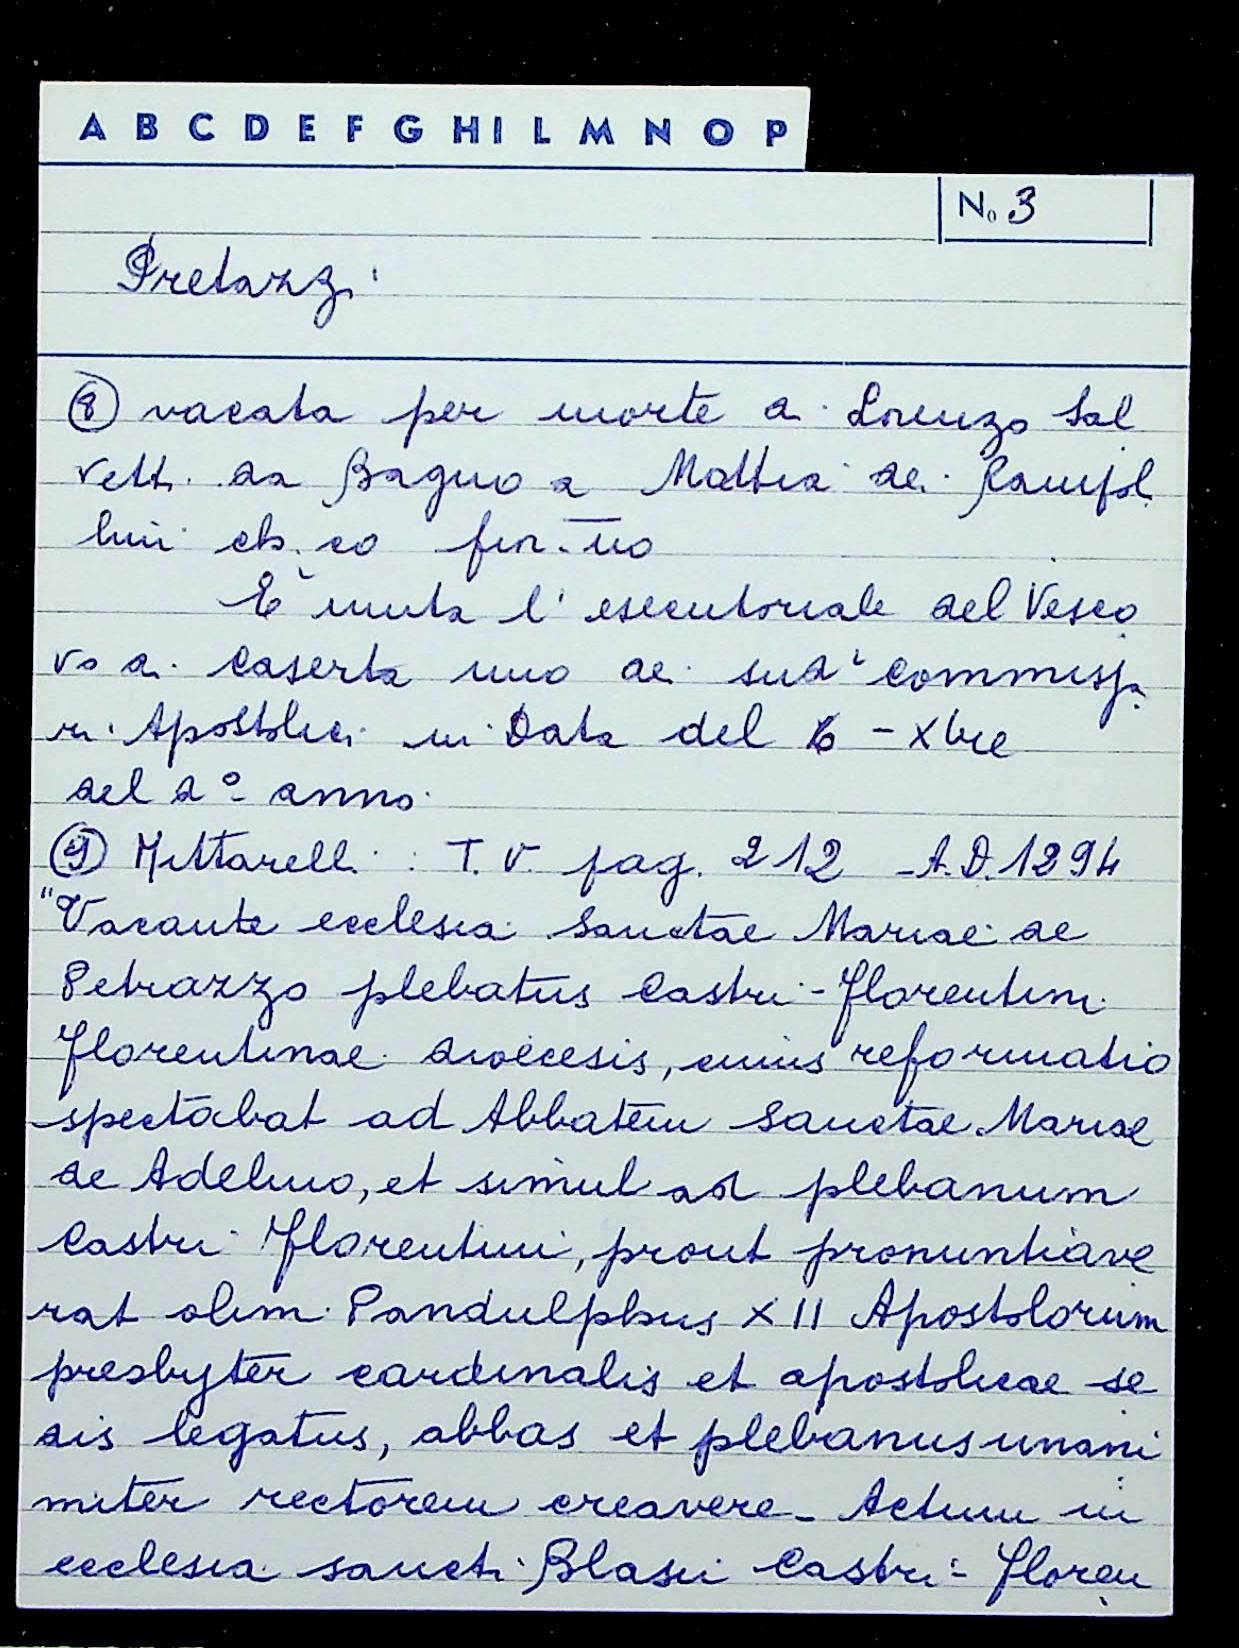 A B C D E F G H I L M N O P
No 3
Pretazzi
8 vacata per morte di Lorenzo Sal
vetti da Bagno a Mattia dei
lini ch.co fior.no
È unita l'esecutoriale del Vesco
vo di Caserta uno dei sudd' commissa
ri Apostolici in Data del 6 - Xbre
del do anno.
9 Mittarelli: T. V. pag. 212 - A.D. 1294
"Vacante ecclesia Sanctae Mariae de
Petrazzo plebatus Castri-Florentini
Florentinae dioecesis, cuius reformatio
spectabat ad Abbatem Sanctae Mariae
de Adelmo, et simul ad plebanum
Castri Florentini, prout pronuntiave
rat olim Pandulphus XII Apostolorum
presbyter cardinalis et apostolicae se
dis legatus, abbas et plebanus unani
miter rectorem creavere - Actum in
ecclesia sancti Blasii Castri-Floren